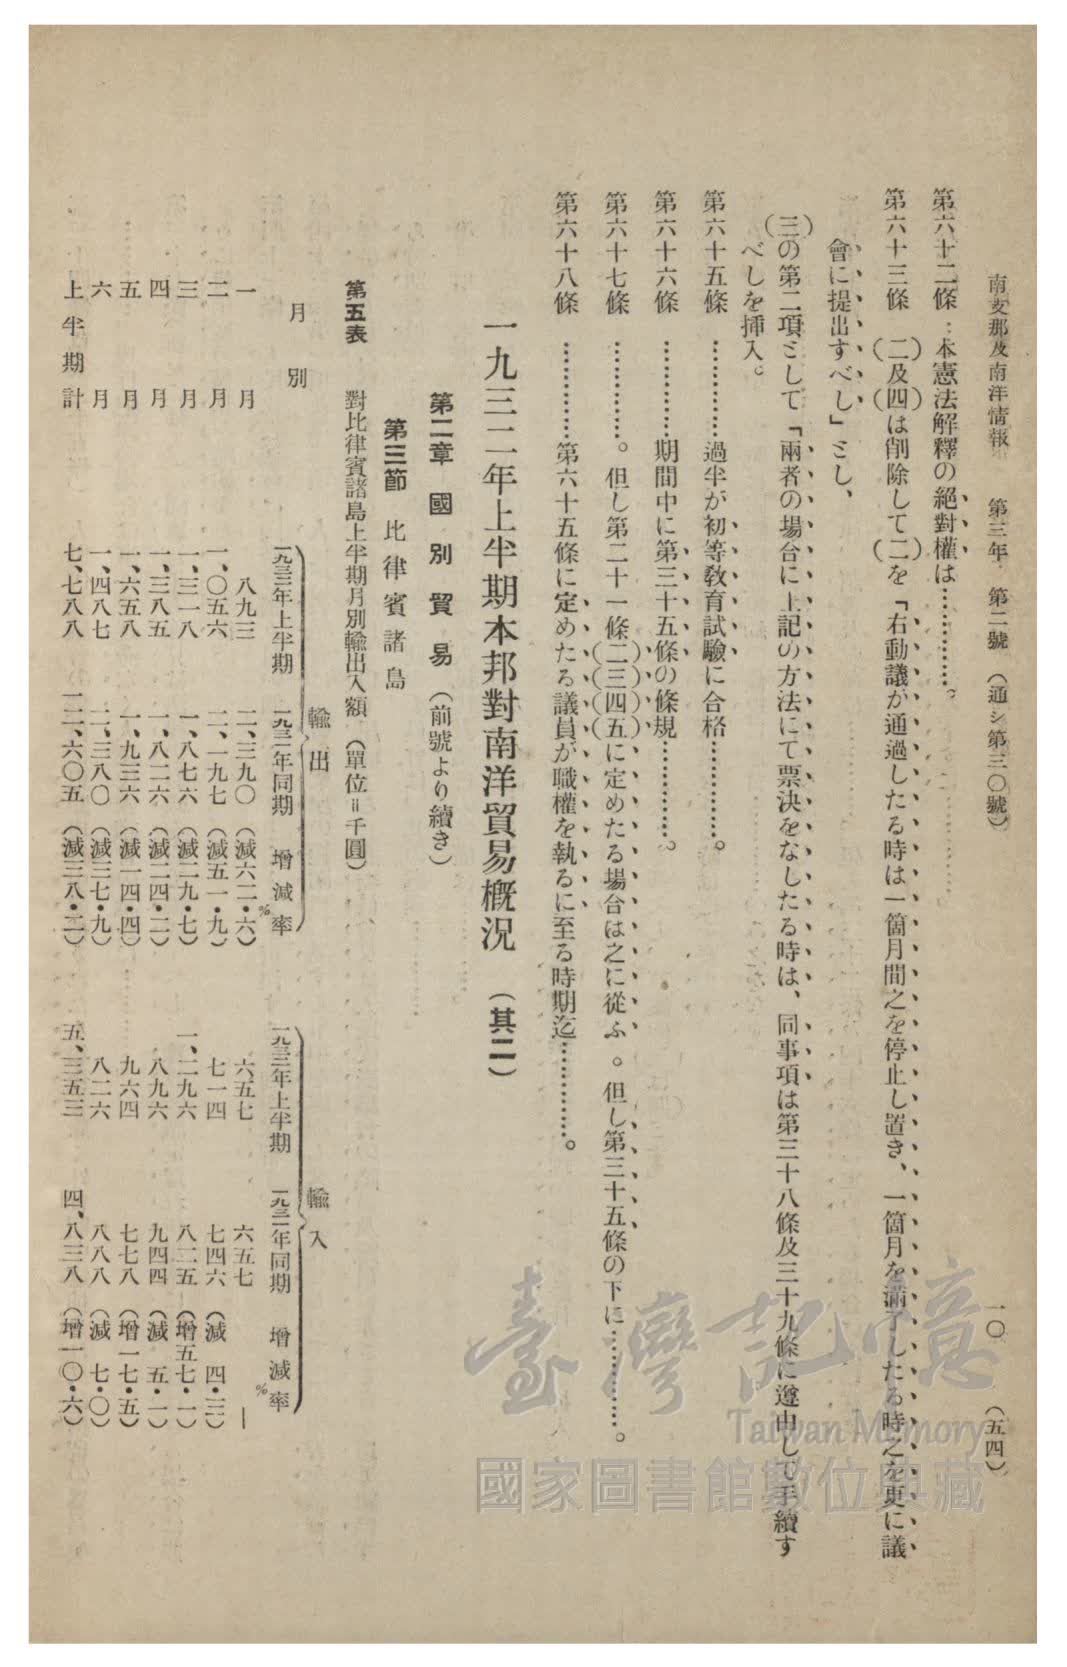 南支那及南洋情報 第三年 第二號 (通シ第三〇號) 一〇 (五四)
第六十二條…本憲法解釋の絕對權は…………。
第六十三條 (二)及(四)は削除して(二)を「右動議が通過したる時は一箇月間之を停止し置き、一箇月を滿了したる時之を更に議
會に提出すべし」とし、
(三)の第二項として「兩者の場合に上記の方法にて票決をなしたる時は、同事項は第三十八條及三十九條に遵由して手續す
べしを挿入。
第六十五條 …………過半が初等敎育試驗に合格…………。
第六十六條 …………期間中に第三十五條の條規…………。
第六十七條 …………。但し第二十一條(二)(三)(四)(五)に定めたる場合は之に從ふ。但し第三十五條の下に…………。
第六十八條 …………第六十五條に定めたる議員が職權を執るに至る時期迄…………。
一九三二年上半期本邦對南洋貿易槪況 (其二)
第二章 國別貿易 (前號より續き)
第三節 比律賓諸島
第五表 對比律賓諸島上半期月別輸出入額 (單位=千圓)
輸出 輸入
月別 一九三二年上半期 一九三一年同期 增減率% 一九三二年上半期 一九三一年同期 增減率%
一月 八九三 二、三九〇 (減六二・六) 六五七 六五七 —
二月 一、〇五六 二、一九七 (減五一・九) 七一四 七四六 (減 四・三)
三月 一、三一八 一、八七六 (減二九・七) 一、二九六 八二五 (增五七・一)
四月 一、三八五 一、八二六 (減二四・二) 八九六 九四四 (減 五・一)
五月 一、六五八 一、九三六 (減一四・四) 九六四 七七八 (增一七・五)
六月 一、四八七 二、三八〇 (減三七・九) 八二六 八八八 (減 七・〇)
上半期計 七、七八八 一二、六〇五 (減三八・二) 五、三五三 四、八三八 (增一〇・六)
臺灣記憶
Taiwan Memory
國家圖書館數位典藏